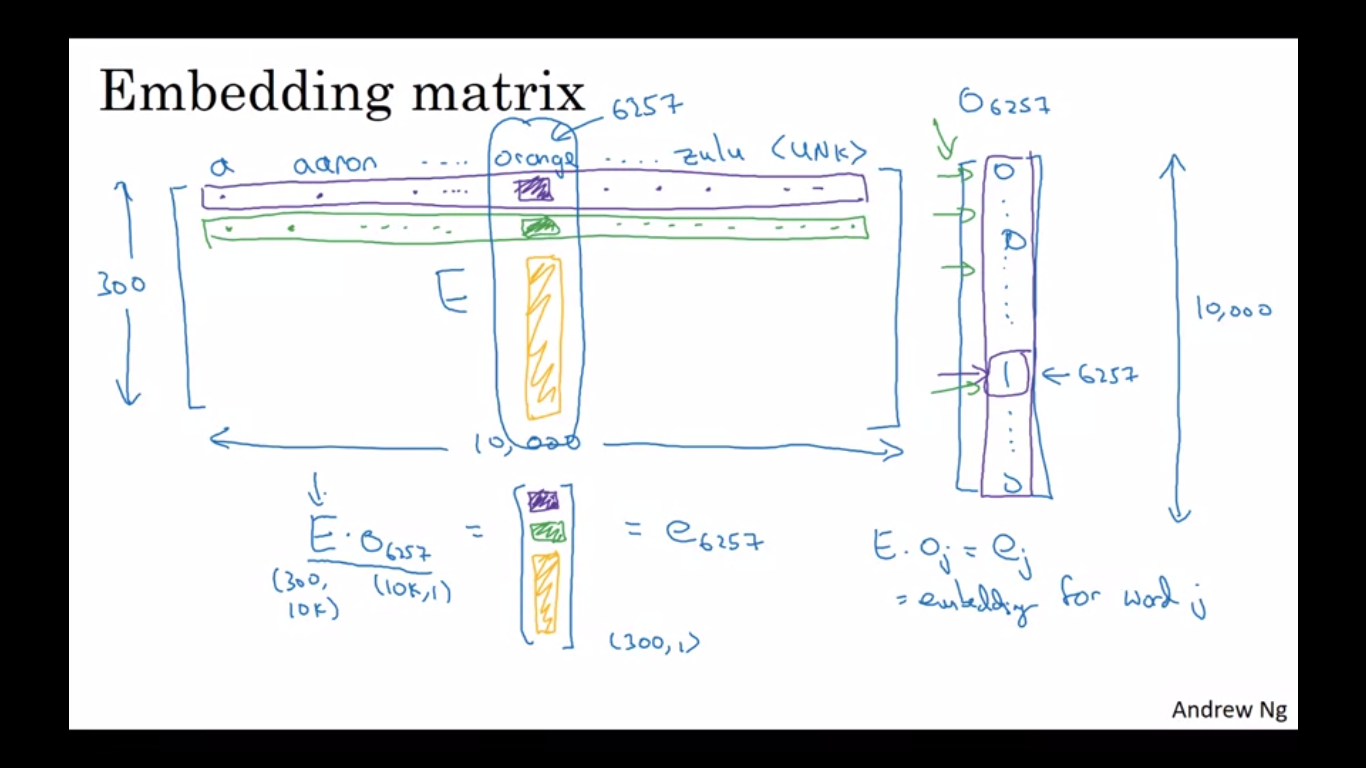 Embedding matrix
6257
O6257
a aaron ..... orange ..... zulu <UNK>
0
0
300
E
10,000
1 ← 6257
10,000
0
E · o6257 = [ ] = e6257
(300, 10K) (10K, 1)
(300, 1)
E · oj = ej
= embedding for word j
Andrew Ng